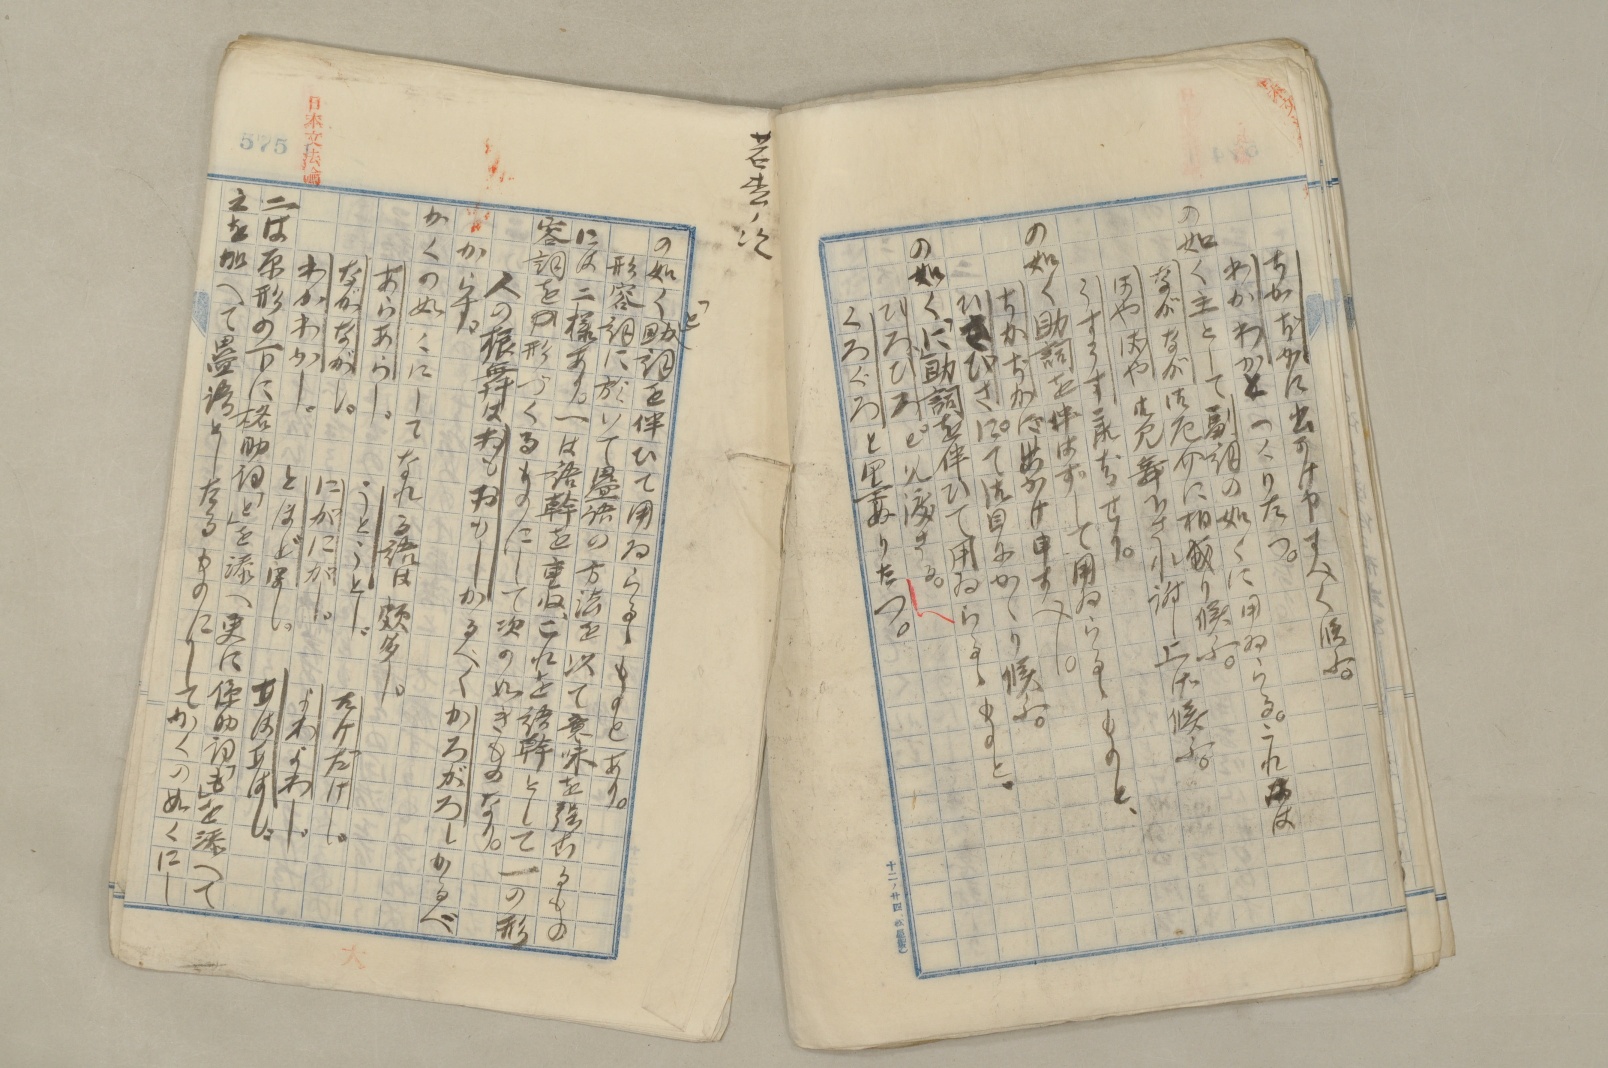 ちかぢかに出かけ申すべく候ふ。
わかわかとつくりたつ。
の如く主として副詞の如くに用ゐらる。これには
ながながは厄介に相成り候ふ。
はやはや
うすうす承知せり。
の如く助詞を伴はずして用ゐらるゝものと、
ちかぢか御出かけ申すべし。
ひさびさにて御目にかゝり候ふ。
の如く「に」助詞を伴ひて用ゐらるゝものと、
ひろびろと見渡さる。
くろぐろと墨をぬりたつ。
十二ノ廿四
若書ノ次
575
日本文法論
の如く「と」助詞を伴ひて用ゐらるゝものとあり。
形容詞に於いて畳語の方法を以て意味を強むるもの
には二様あり。一は語幹を重ね、これを語幹として一の形
容詞を形づくるものにして次の如きものなり。
人の振舞はおもおもしかるべくかろがろしかるべ
からず。
かくの如くにしてなれる語は頗多し。
あらあらし。 うとうとし。 たけだけし。
ながながし。 にがにがし。 よわよわし。
わかわかし。 とほどほし。 あはあはし。
二は原形の下に格助詞「と」を添へ更に係助詞「も」を添へて
之を加へて畳語としたるものにしてかくの如くにし
大